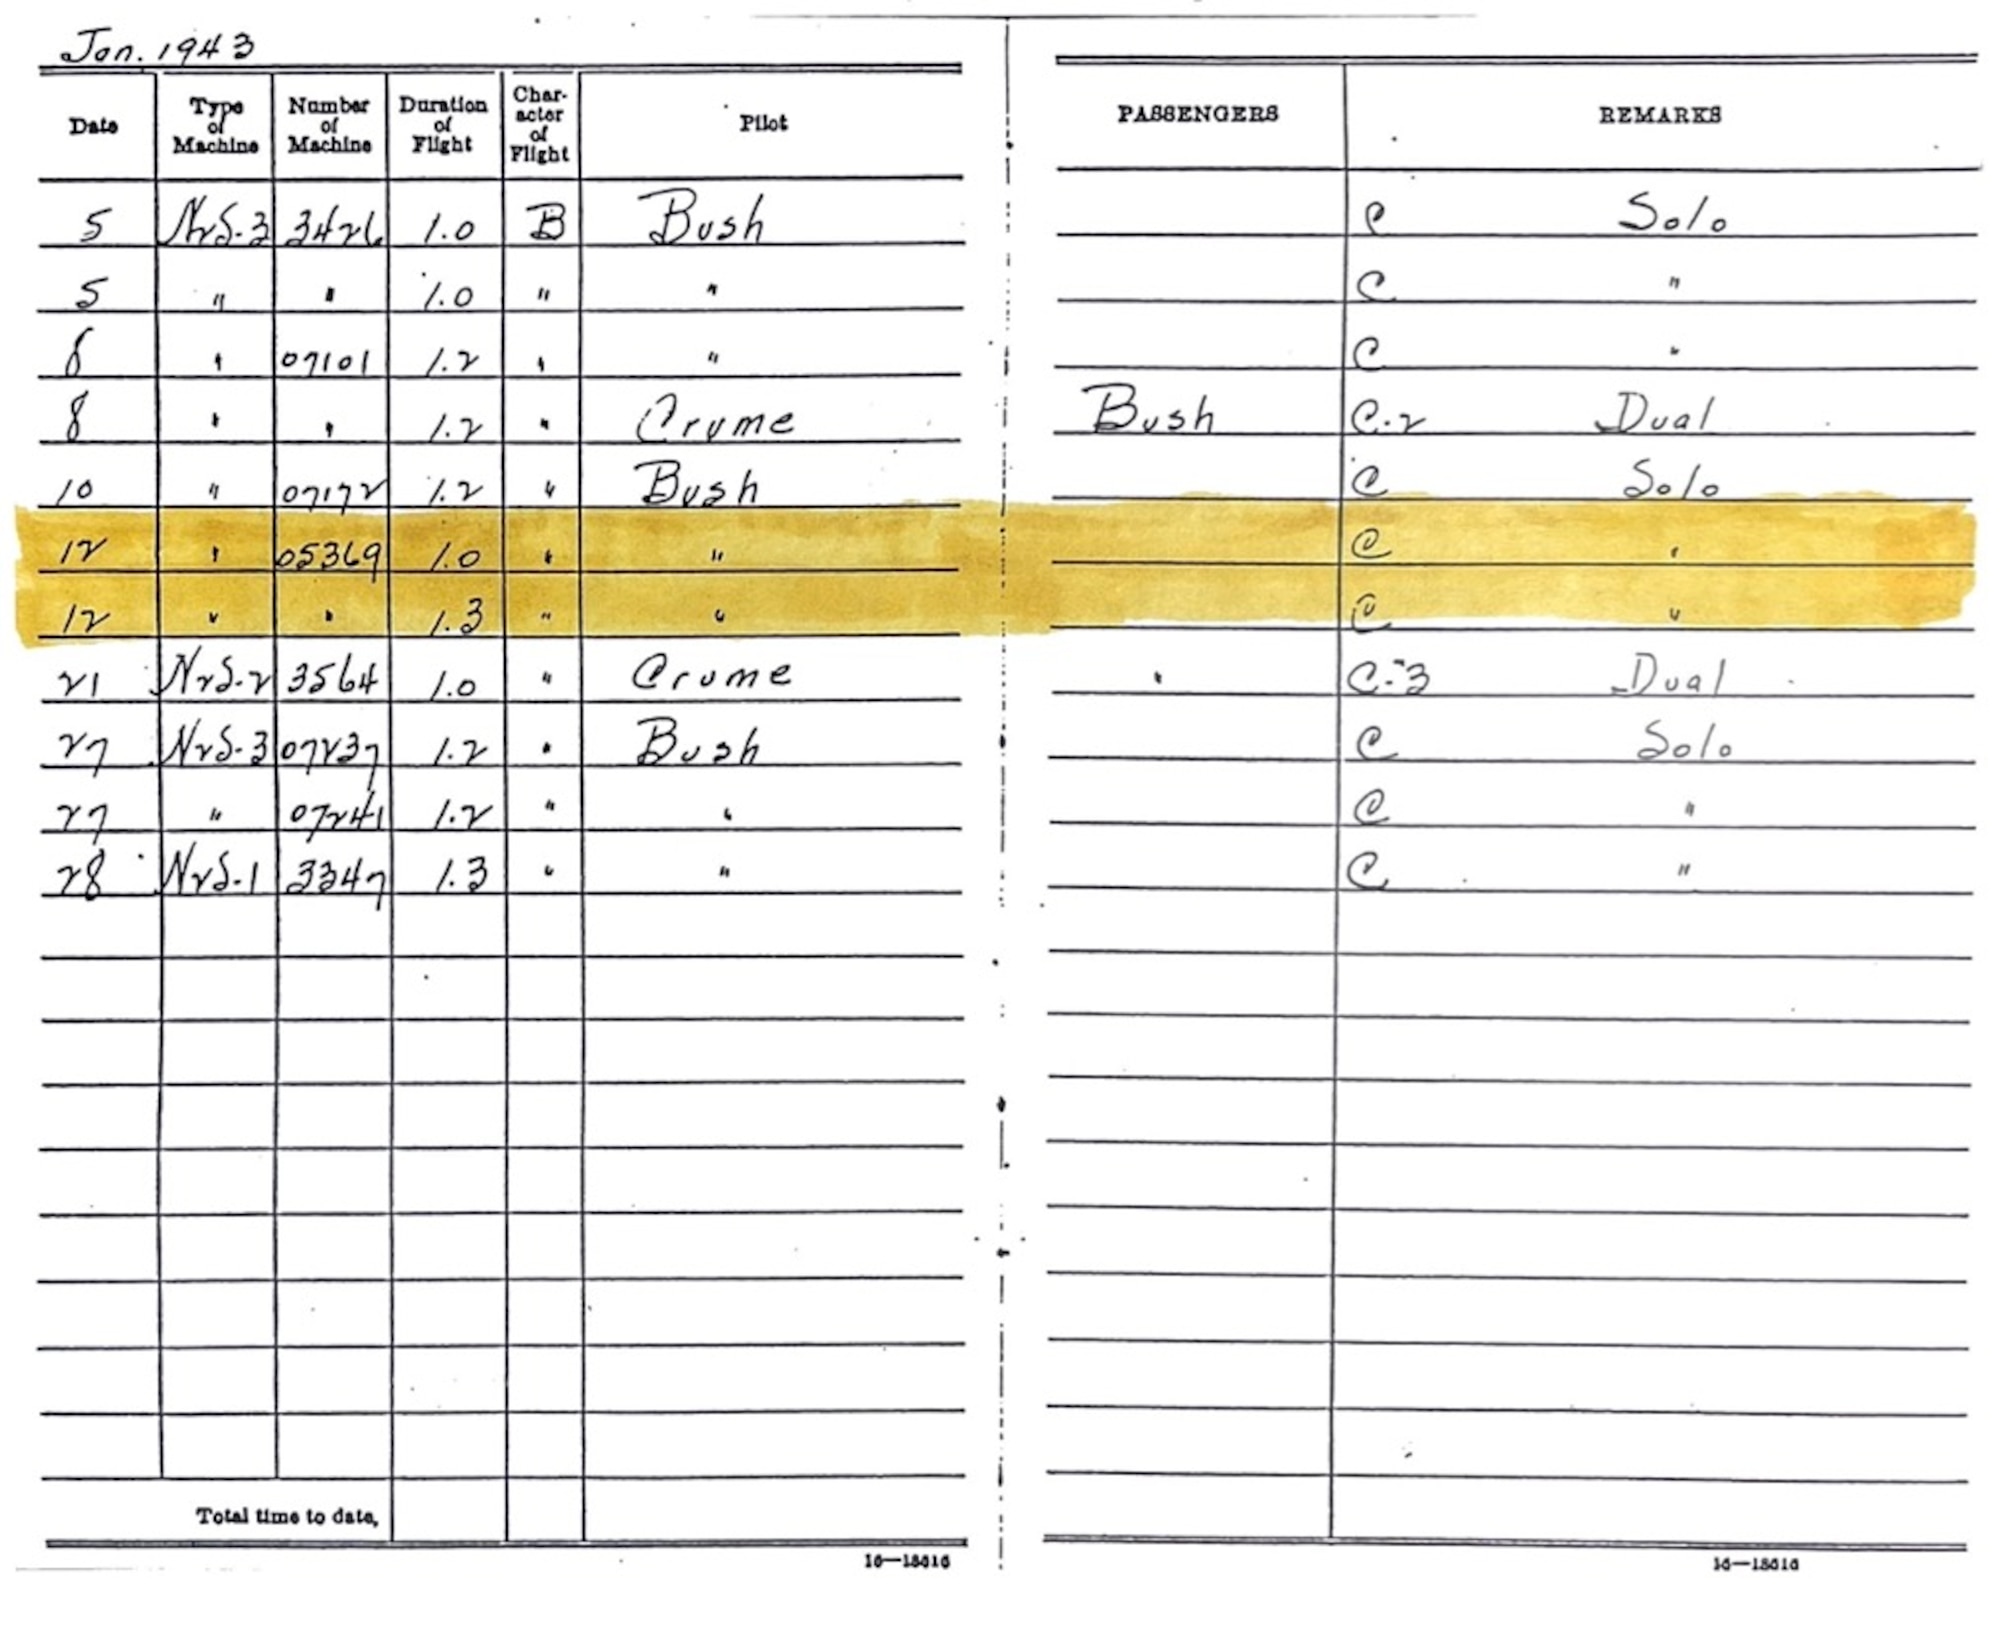 Jan. 1943
Date Type of Machine Number of Machine Duration of Flight Char-acter of Flight Pilot PASSENGERS REMARKS
5 N2S-3 3426 1.0 B Bush C Solo
5 " " 1.0 " " C "
8 " 07101 1.2 " " C "
8 " " 1.2 " Crume Bush C-2 Dual
10 " 07172 1.2 " Bush C Solo
12 " 05369 1.0 " " C "
12 " " 1.3 " " C "
21 N2S-2 3564 1.0 " Crume " C-3 Dual
27 N2S-3 07237 1.2 " Bush C Solo
27 " 07241 1.2 " " C "
28 N2S-1 3347 1.3 " " C "
Total time to date,
16—18616 16—18616